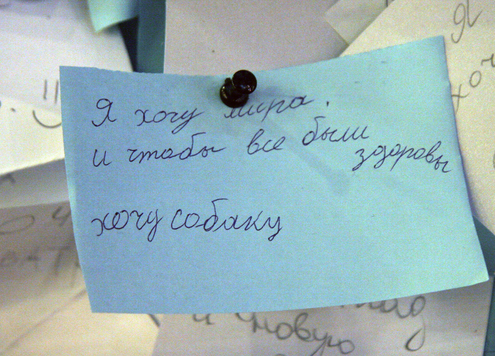 Я хочу мира.
и чтобы все были
здоровы
хочу собаку
Я
хоч
и новую